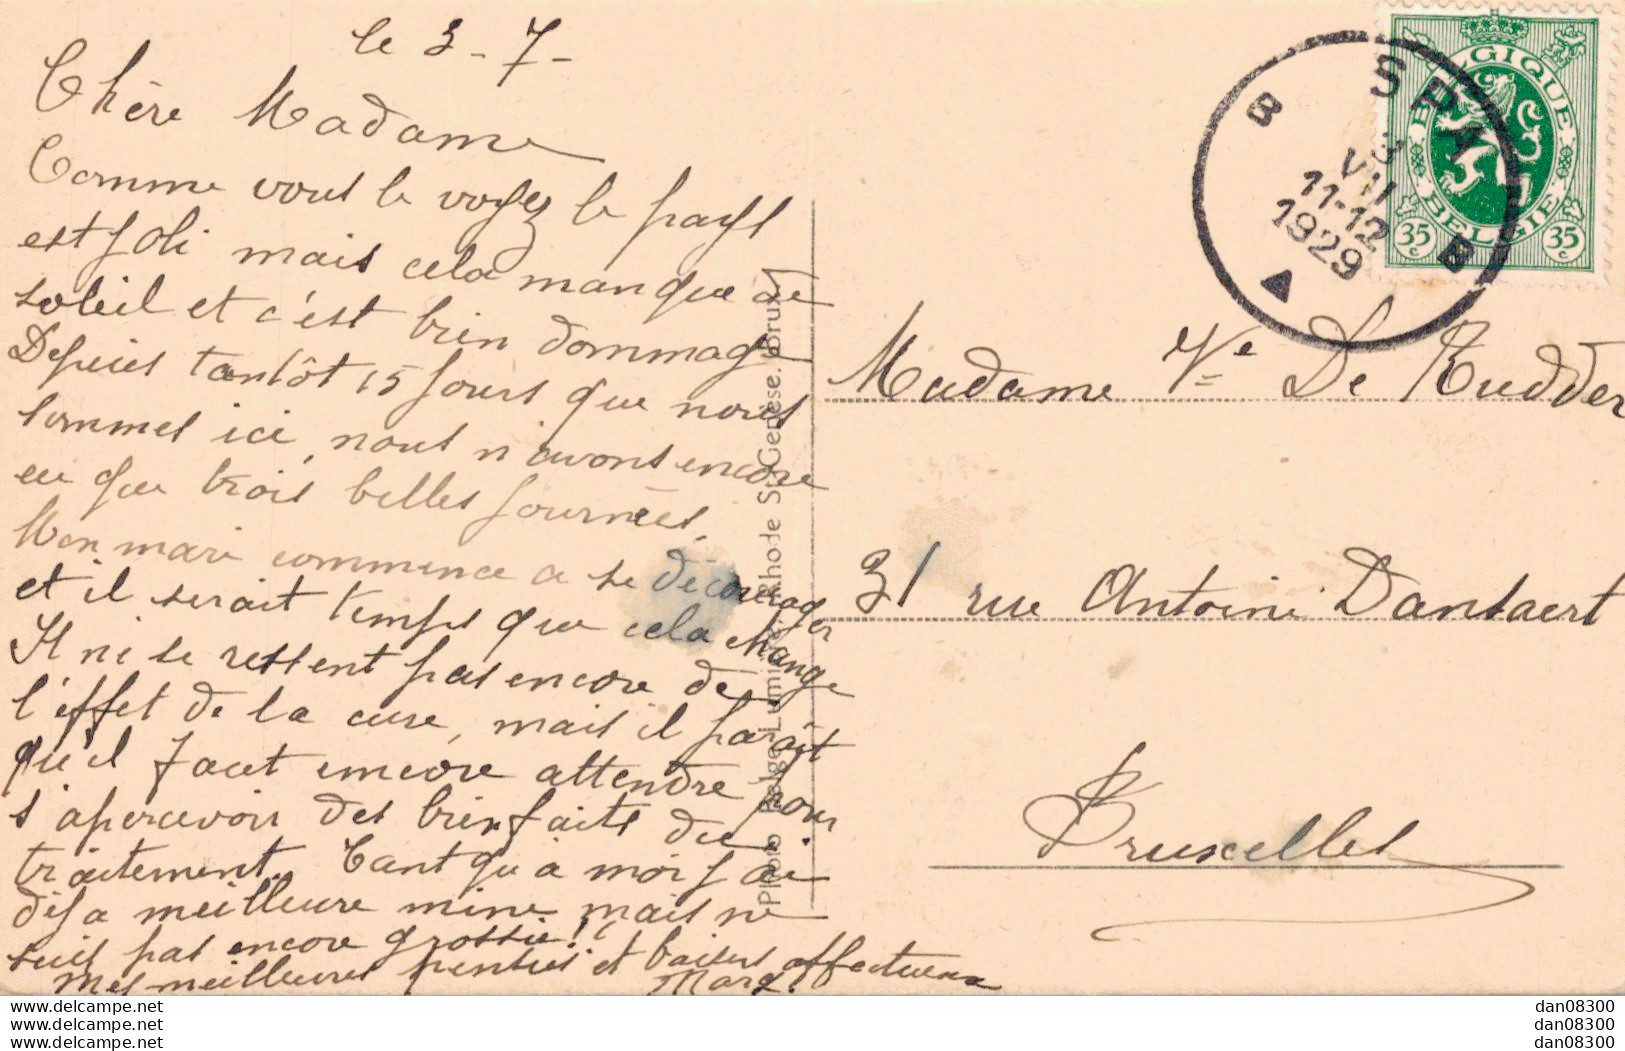 le 3-7-
Chère Madame
Comme vous le voyez le pays
est joli mais cela manque de
soleil et c'est bien dommage
Depuis tantôt 15 jours que nous
sommes ici, nous n'avons encore
eu que trois belles journées.
Mon mari commence a se décourager
et il serait temps que cela change
Il ne se ressent pas encore de
l'effet de la cure, mais il paraît
qu'il faut encore attendre pour
s'apercevoir des bienfaits du
traitement. Tant qu'a moi j'ai
déja meilleure mine mais ne
suis pas encore grossie!
Mes meilleures pensées et baisers affectueux
Marg.
Photo Belge Lumière, Rhode St. Genèse. (Brux.
BELGIQUE
BELGIE
35 c
35 c
SPA
B B
3
VII
11-12
1929
Madame Ve De Rudder
31 rue Antoine Dansaert
Bruxelles
www.delcampe.net
www.delcampe.net
www.delcampe.net
dan08300
dan08300
dan08300